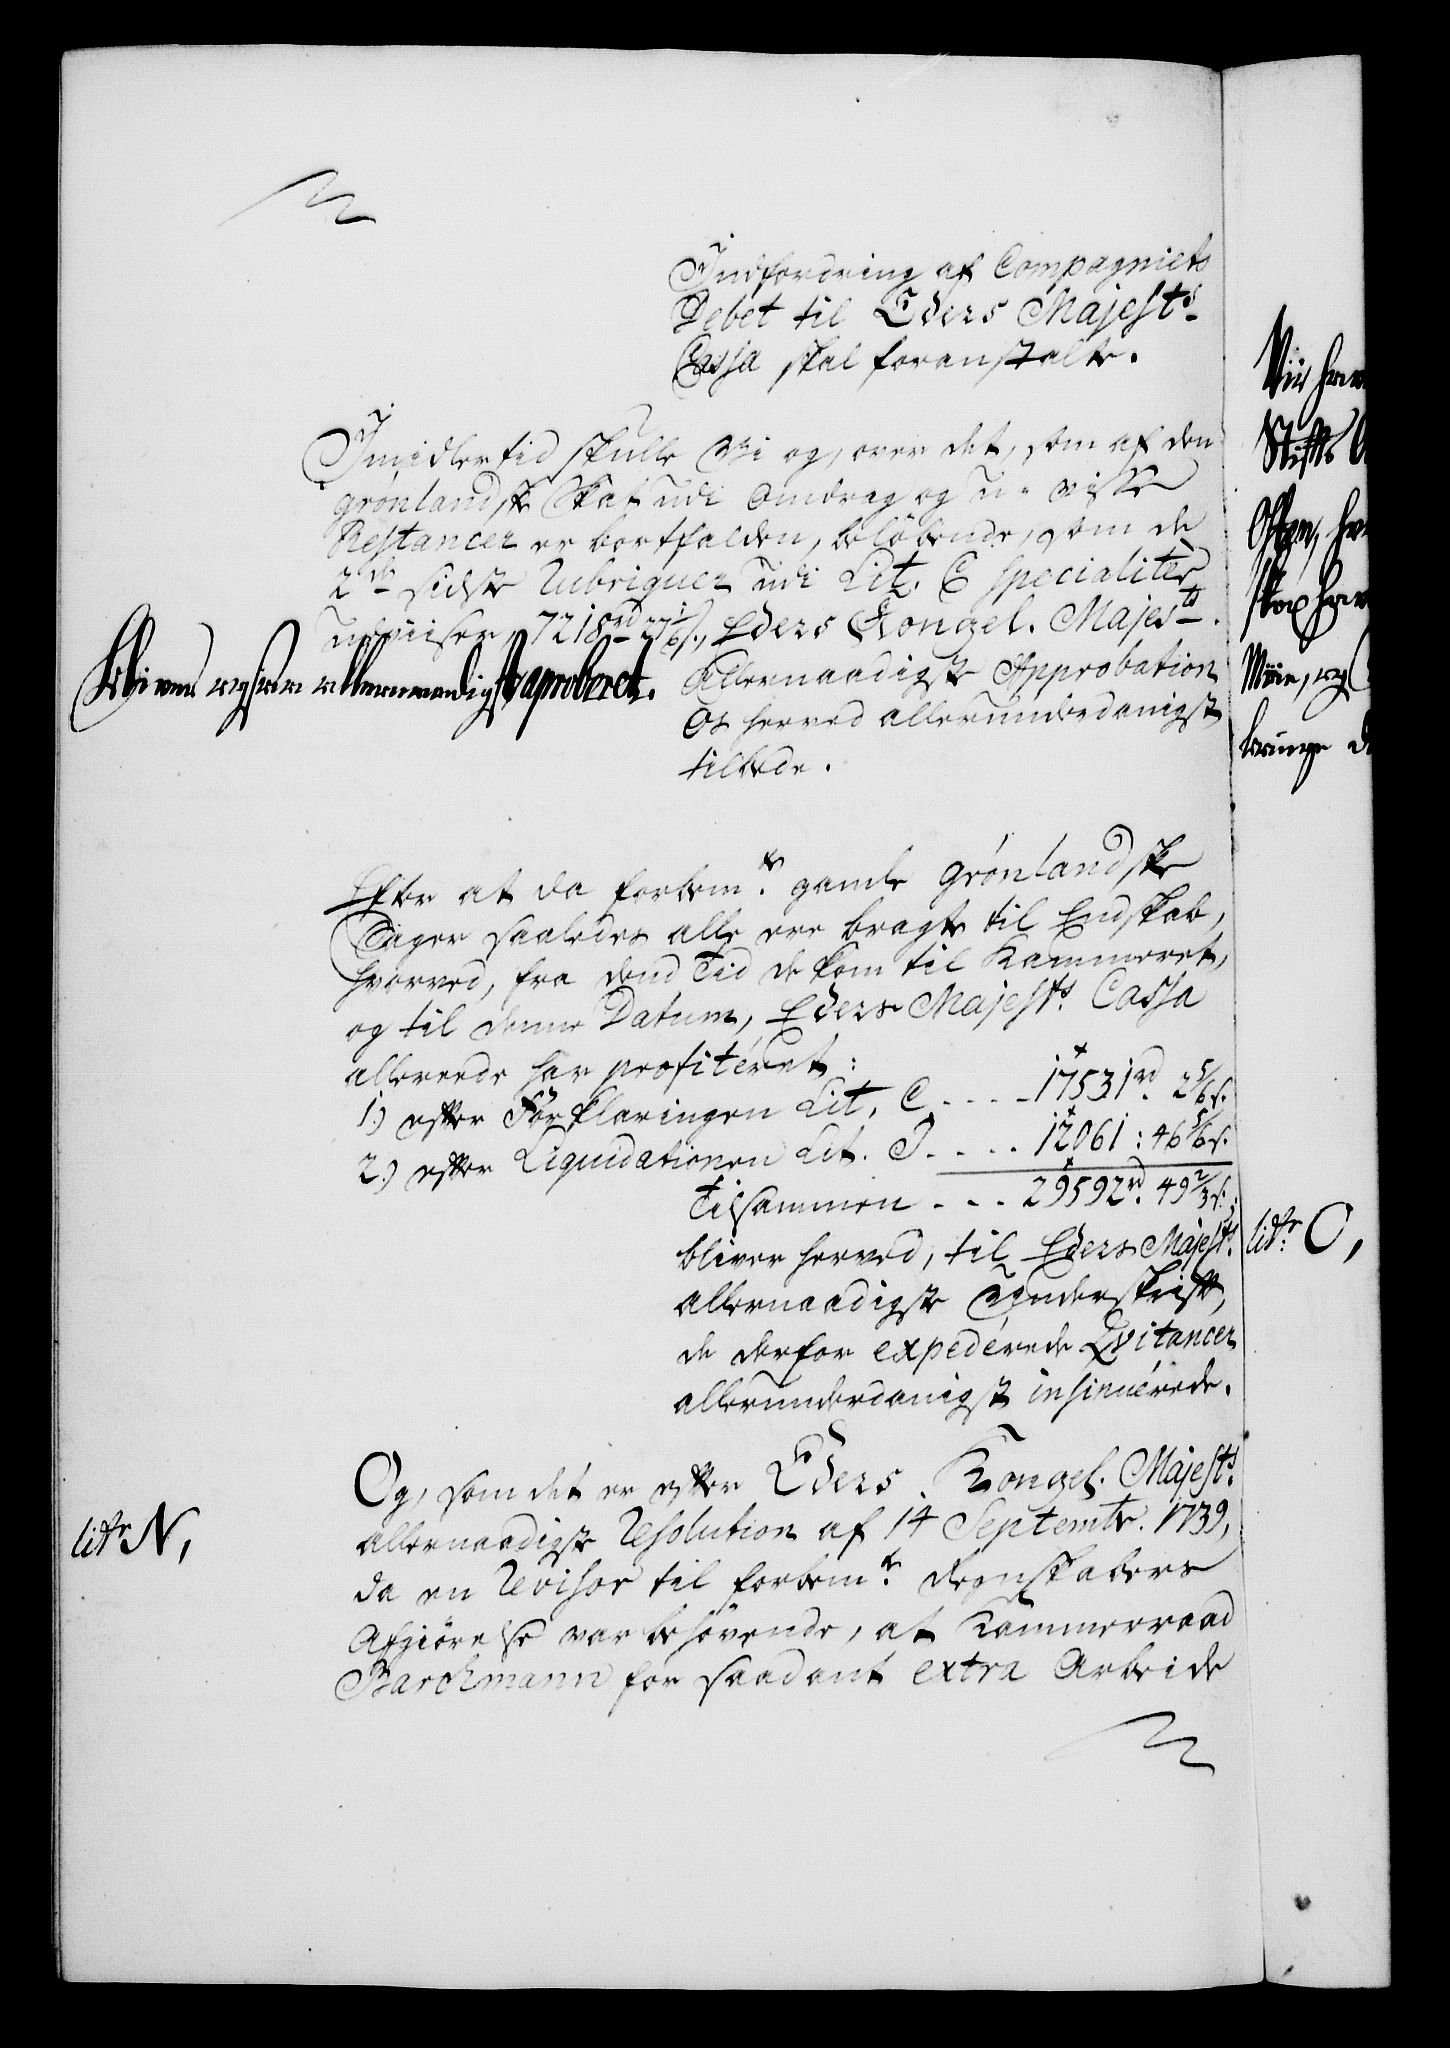 Indfordring af Compagniets
Debet til Eders Majest.ts
Cassa skal foranstalte.
Imidlertid skulle Vi og, over det, som af den
grønlandske Skat udi omdrag og u-visse
Restancer er bortfalden, beløbende, som de
2de sidste Rubriquer udi Lit. C specialiter
udviiser, 7218rd 27 1/6 s., Eders Kongel. Majest.ts
allernaadigste Approbation
os herved allerunderdanigst
tilbede.
allernaadigst aproberet.
Efter at da forbem.te gamle grønlandske
Sager saaledes alle ere bragte til Endskab,
hvorved, fra dend Tid de kom til Kammeret,
og til denne Datum, Eders Majest.ts Cassa
allereede har profiteret:
1.) efter Forklaringen Lit. C. - - - - 17531rd. 2 5/6 s.
2.) efter Liquidationen Lit. J. - - - - 12061: 46 5/6 s.
Tilsammen - - - 29592rd. 49 2/3 s.;
bliver herved, til Eders Majest.ts
allernaadigste Underskrift,
de derfor expederede Qvitancer
allerunderdanigst insinuerede.
Og, som det er efter Eders Kongel. Majest.ts
allernaadigste Resolution af 14 Septembr. 1739,
litr N,
da en Revisor til forbem.te Regnskabers
Afgiørelse var behøvende, at Kammerraad
Barchmann for saadant extra Arbeide
Vii have
Stifts
skop har
Miin, og
bringe
litr: O,